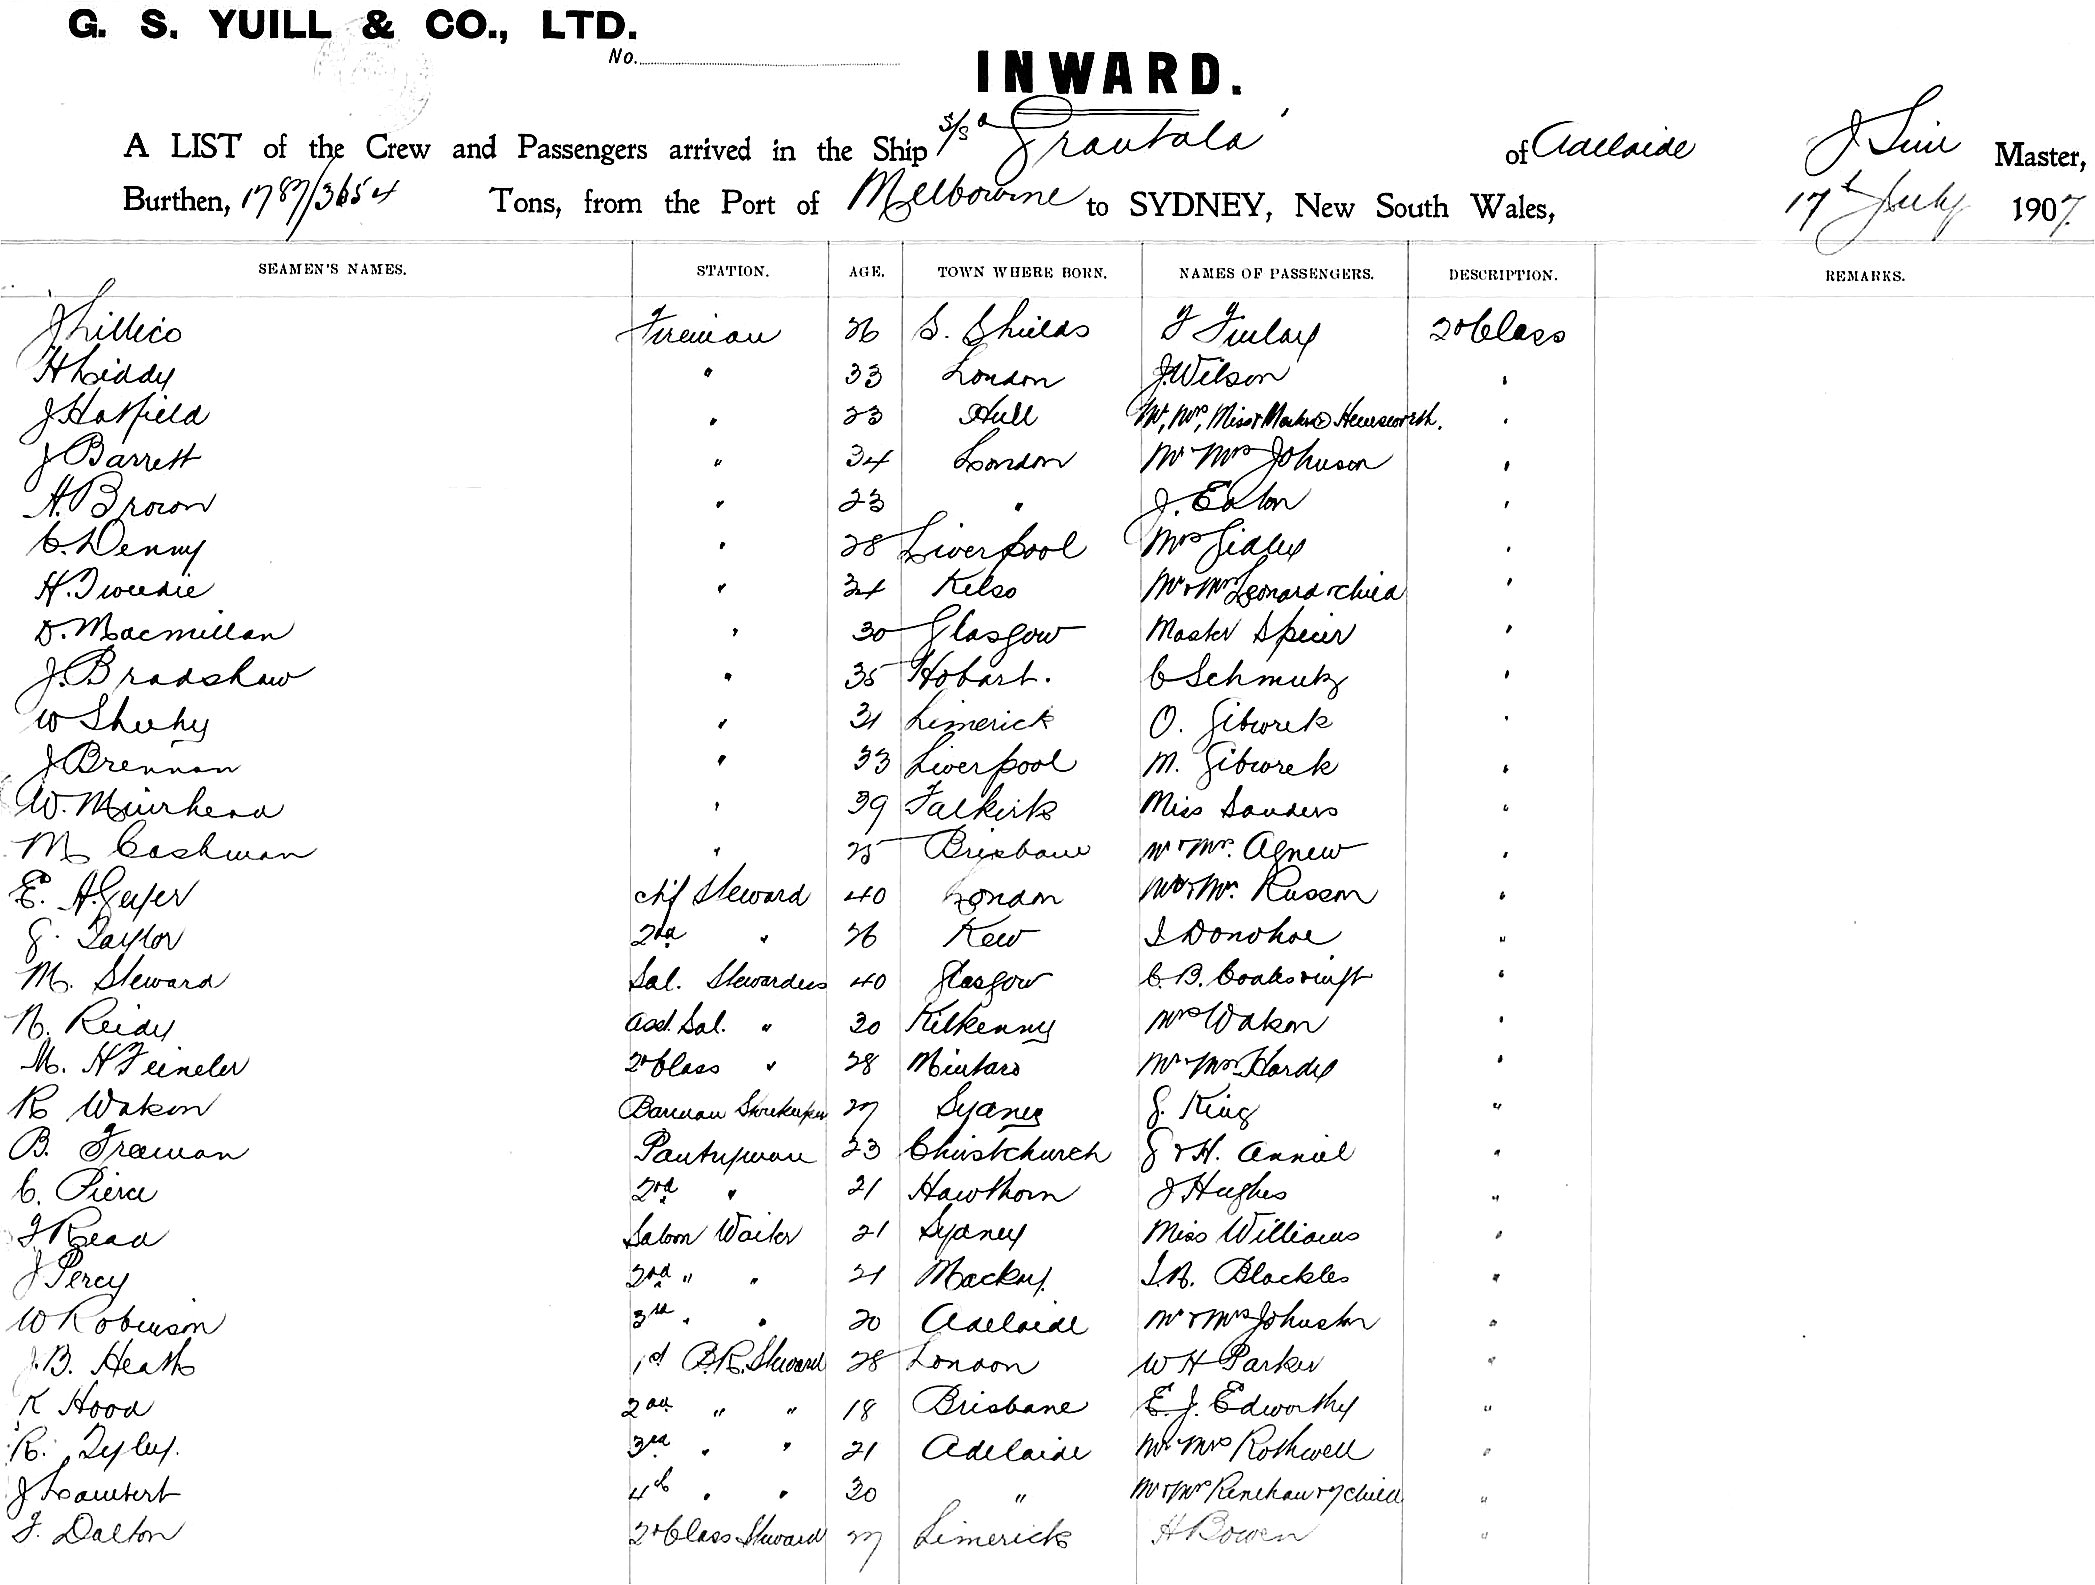 G. S. YUILL & CO., LTD.
No.
INWARD.
A LIST of the Crew and Passengers arrived in the Ship S/S Grantala of Adelaide J Sim Master,
Burthen, 1787/3654 Tons, from the Port of Melbourne to SYDNEY, New South Wales, 17th July 1907.
SEAMEN'S NAMES. STATION. AGE. TOWN WHERE BORN. NAMES OF PASSENGERS. DESCRIPTION. REMARKS.
J Lillico Fireman 26 S. Shields F Finlay 2nd Class
H Liddy " 33 London J. Wilson "
J Hatfield " 23 Hull Mr, Mrs, Miss & Master Hemsworth. "
J Barrett " 34 London Mr Mrs Johnson "
A. Brown " 23 " J. Eaton "
C. Denny " 28 Liverpool Mrs Sidley "
H. Tweedie " 24 Kelso Mr & Mrs Leonard & child "
D. Macmillan " 30 Glasgow Master Speier "
J. Bradshaw " 35 Hobart. C Schmutz "
W Sheehy " 31 Limerick O. Gibwrek "
J Brennan " 33 Liverpool M. Gibwrek "
W. Muirhead " 39 Falkirk Miss Sanders "
M Cashman " 25 Brisbane Mr & Mrs. Agnew "
E. A. Geyer chf Steward 40 London Mr & Mrs. Russon "
G. Taylor 2nd " 26 Kew J Donohoe "
M. Steward Sal. Stewardess 40 Glasgow C. B. "
N. Reidy asst. Sal. " 30 Kilkenny Mrs Watson "
M. H Feineler 2nd Class " 28 Mintaro Mr & Mrs. Hardy "
R Watson Barman Storekeeper 27 Sydney G. King "
B. Freeman Pantryman 23 Christchurch G & H. Anniel "
C. Pierce 2nd " 21 Hawthorn J Hughes "
F Read Saloon Waiter 21 Sydney Miss Williams "
J Percy 2nd " " 21 Mackay. J. A. Blackles "
W Robinson 3rd " " 20 Adelaide Mr & Mrs Johnston "
J. B. Heath 1st B.R. Steward 28 London W H Parker "
K Hood 2nd " " 18 Brisbane E. J. Edworthy "
R. Tyley. 3rd " " 21 Adelaide Mr & Mrs Rothwell "
J Lambert 4th " " 30 " Mr & Mrs Renshaw & child "
F. Dalton 2nd Class Steward 27 Limerick H Bowen "